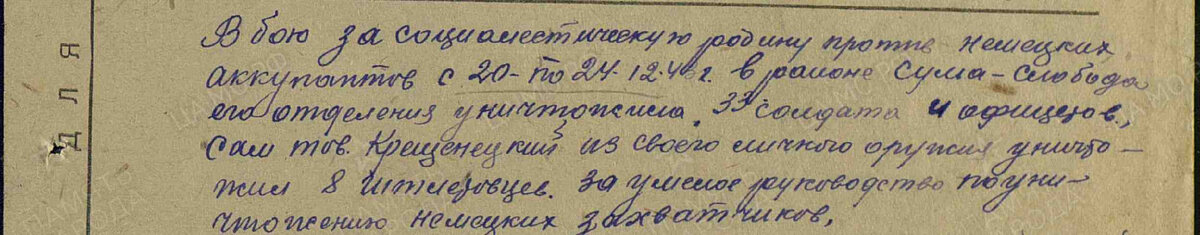 В бою за социалестическую родину против немецких
аккупантов с 20- по 24-12.43г. в районе Сума-Слобода
его отделения уничтожила 33 солдата и офицеров.,
Сам тов. Крещенецкий из своего личного оружия уничто-
жил 8 гитлеровцев. За умелое руководство по уни-
чтожению немецких захватчиков.
ДЛЯ